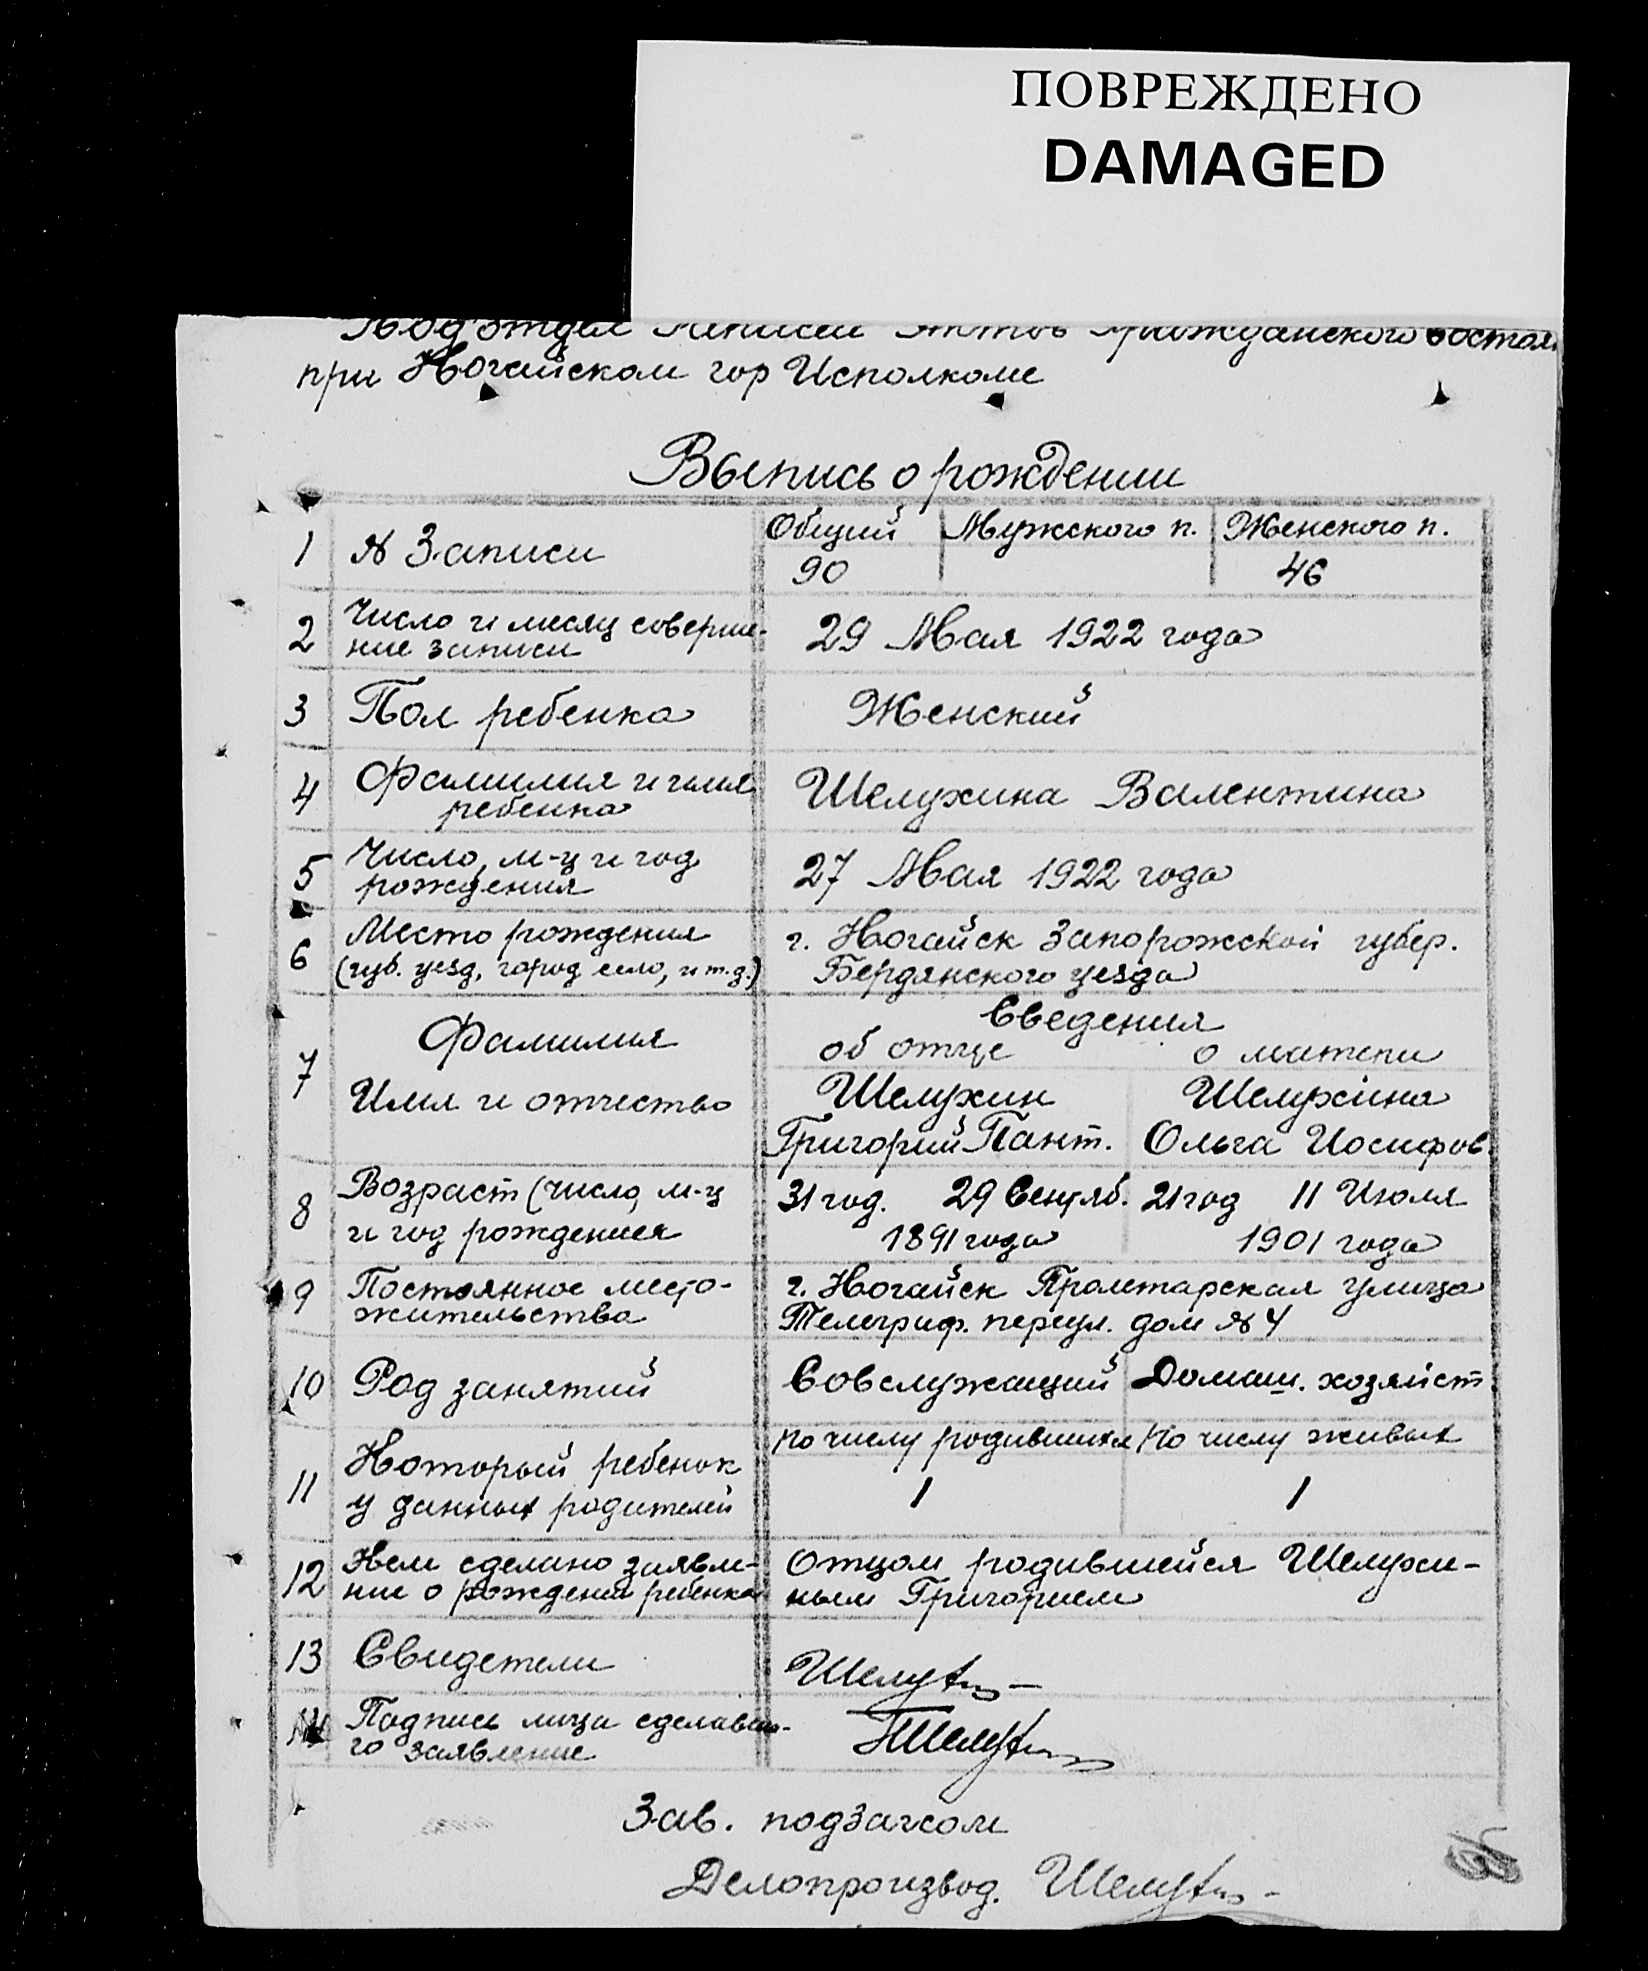 ПОВРЕЖДЕНО
DAMAGED
Подотдел Записи Актов Гражданского Состоян
при Ногайском гор Исполкоме
Выпись о рождении
1 № Записи Общий Мужского п. Женского п.
90 46
2 Число и месяц соверше-
ние записи 29 Мая 1922 года
3 Пол ребенка Женский
4 Фамилия и имя
ребенка Шелухина Валентина
5 Число, м-ц и год
рождения 27 Мая 1922 года
6 Место рождения г. Ногайск Запорожской губер.
(губ. уезд, город село, и т.д.) Бердянского уезда
Сведения
7 Фамилия об отце о матери
Имя и отчество Шелухин Шелухіна
Григорий Пант. Ольга Иосифов.
8 Возраст (число, м-ц 31 год. 29 Сентяб. 21 год 11 Июля
и год рождения 1891 года 1901 года
9 Постоянное место- г. Ногайск Пролетарская улица
жительства Телеграф. переул. дом № 4
10 Род занятий Совслужащий Домаш. хозяйст.
По числу родившихся По числу живых
11 Который ребенок
у данных родителей 1 1
12 Кем сделано заявле- Отцом родившейся Шелухи-
ние о рождении ребенка ным Григорием
13 Свидетели Шелухин
14 Подпись лица сделавше-
го заявление Шелухин
Зав. подзагсом
Делопроизвод. Шелухин